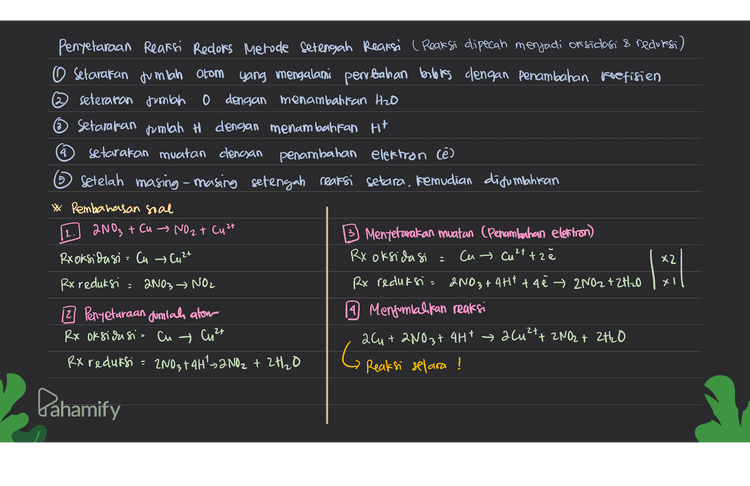 Penyetaraan Reaksi Redoks Metode Setengah Reaksi (Reaksi dipecah menjadi oksidasi & reduksi)
① Setarakan jumlah atom yang mengalami perubahan biloks dengan penambahan koefisien
② setarakan jumlah O dengan menambahkan H₂O
③ Setarakan jumlah H dengan menambahkan H⁺
④ setarakan muatan dengan penambahan elektron (ē)
⑤ Setelah masing-masing setengah reaksi setara, kemudian dijumlahkan
※ Pembahasan soal
1. 2NO₃ + Cu → NO₂ + Cu²⁺
Rx oksidasi = Cu → Cu²⁺
Rx reduksi = 2NO₃ → NO₂
2 Penyetaraan jumlah atom
Rx oksidasi = Cu → Cu²⁺
Rx reduksi = 2NO₃ + 4H⁺ → 2NO₂ + 2H₂O
3 Menyetarakan muatan (Penambahan elektron)
Rx oksidasi = Cu → Cu²⁺ + 2ē | x2
Rx reduksi = 2NO₃ + 4H⁺ + 4ē → 2NO₂ + 2H₂O | x1
4 Menjumlahkan reaksi
2Cu + 2NO₃ + 4H⁺ → 2Cu²⁺ + 2NO₂ + 2H₂O
Reaksi setara !
Pahamify